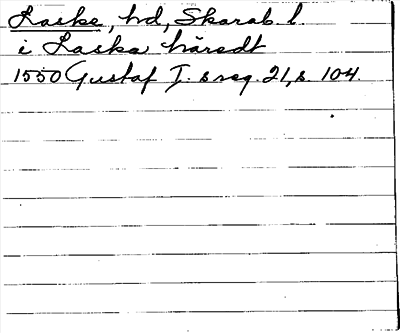 Laske, hd, Skarab. l.
i Laska häredt
1550 Gustaf I:s reg. 21, s. 104